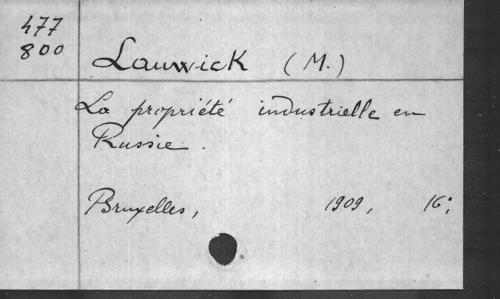 477
800
Lauwick (M.)
La propriété industrielle en
Russie.
Bruxelles, 1909, 16°;